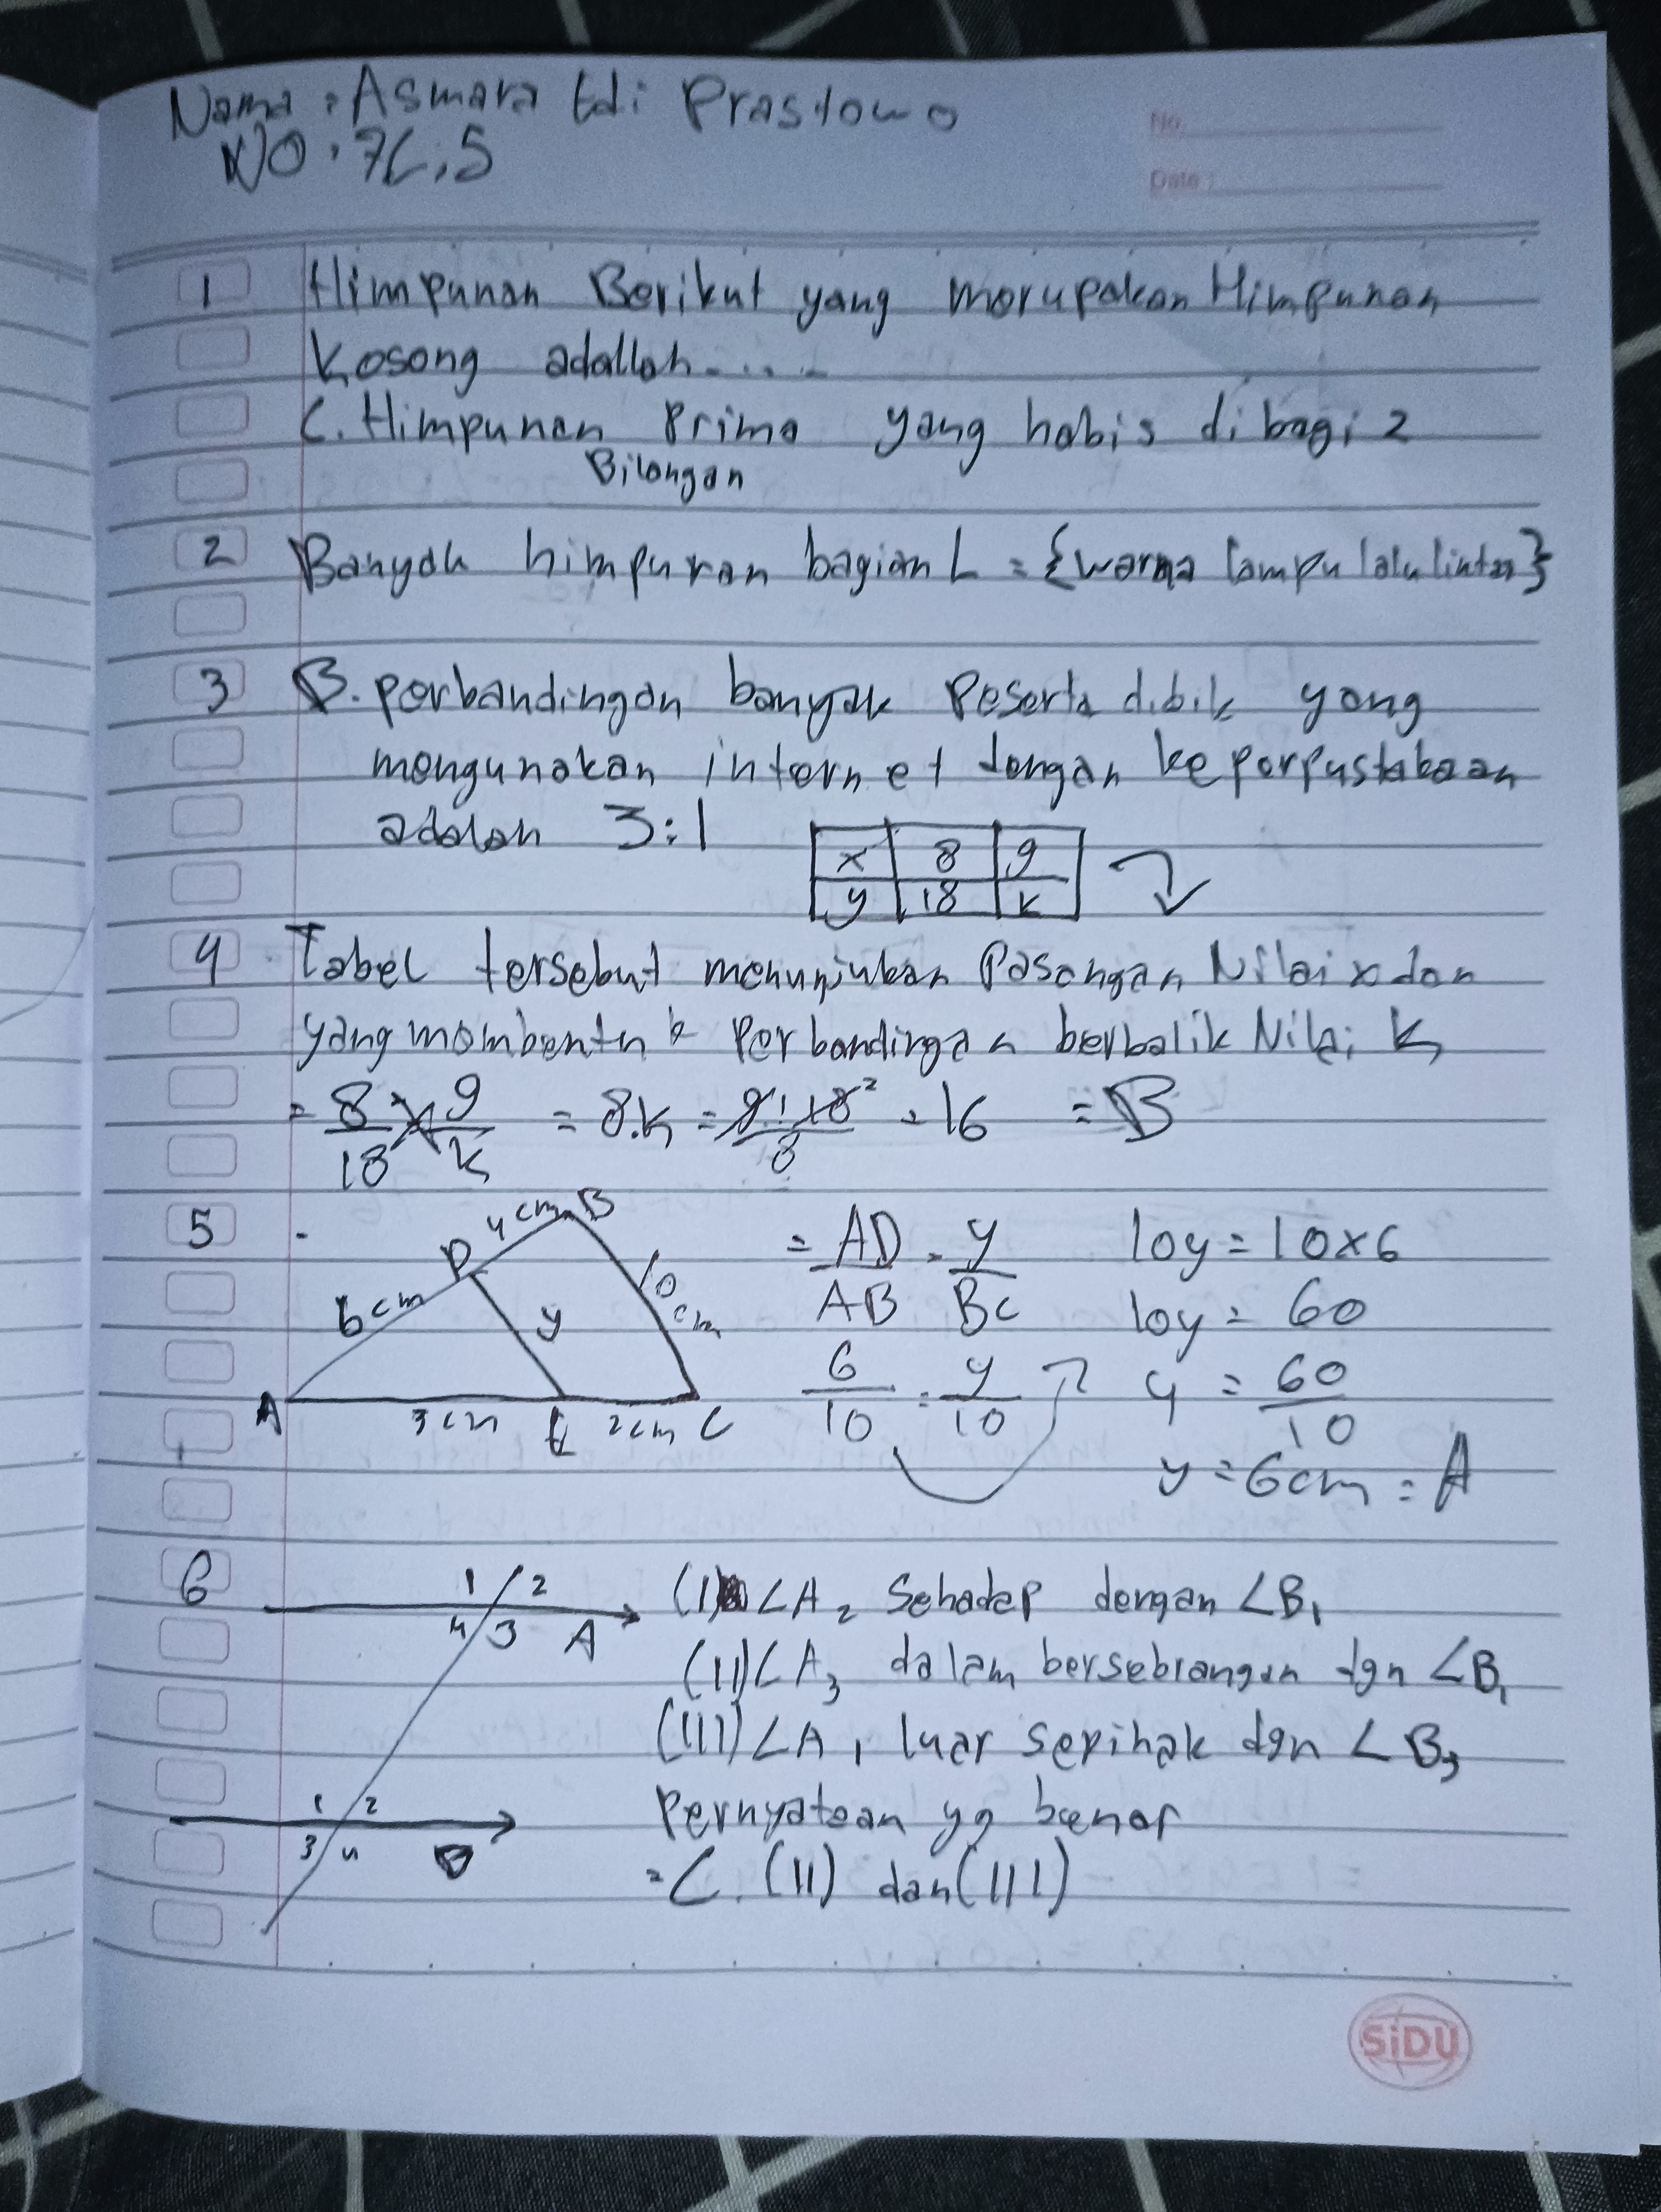 Nama : Asmara Edi Prastowo
NO : 7C : 5
No.
Date :
1 Himpunan Berikut yang merupakan Himpunan
Kosong adallah.....
C. Himpunan Prima yang habis di bagi 2
Bilangan
2 Banyak himpunan bagian L = {warna lampu lalu lintas}
3 B. perbandingan banyak Peserta didik yang
mengunakan internet dengan keperpustakaan
adalah 3:1
x 8 9
y 18 k
4 Tabel tersebut menunjukan Pasangan Nilai x dan
yang membentuk Perbandingan berbalik Nilai k
= 8/18 × 9/k = 8.k = 9.18²/8 = 16 = B
5 .
4 cm B
D
6 cm
y
10 cm
A 3 cm E 2 cm C
= AD/AB = y/BC
6/10 = y/10
10y = 10x6
10y = 60
y = 60/10
y = 6cm = A
6
1 2
4 3 A
1 2
3 4 B
(I) ∠A2 Sehadap dengan ∠B1
(II) ∠A3 dalam bersebrangan dgn ∠B1
(III) ∠A1 luar sepihak dgn ∠B3
Pernyataan yg benar
= C. (II) dan (III)
SiDU